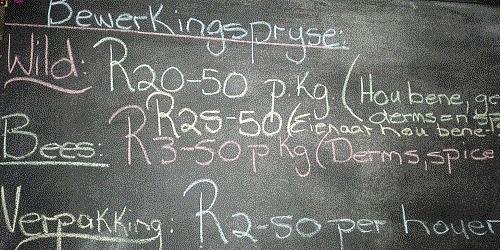 Bewerkingspryse:
Wild: R20-50 p Kg. (Hou bene, ge
derms en sp
R25-50 (Eienaar hou bene
Bees: R3-50 p kg (Derms, spice
Verpakking: R2-50 per houer